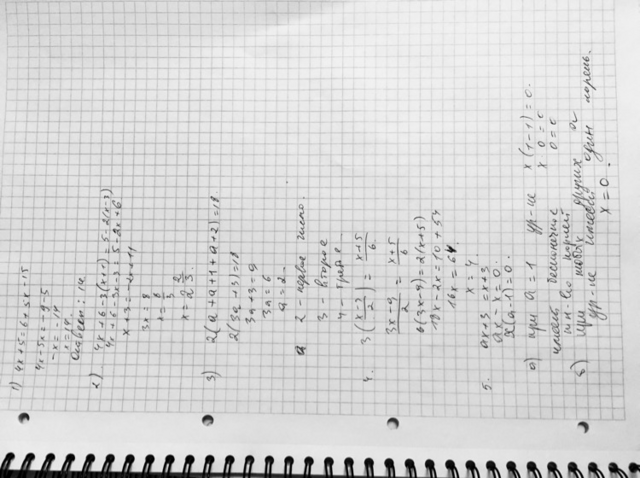 1) 4x+5=6+5x-15
4x-5x=-9-5
-x=-14
x=14.
Ответ: 14.
2) 4x+6-3(x+1)=5-2(x-3)
4x+6-3x-3=5-2x+6
x+3=-2x+11
3x=8
x=8/3
x=2 2/3.
3) 2(a+a+1+a+2)=18
2(3a+3)=18
3a+3=9
3a=6
a=2.
2 - первое число.
3 - второе
4 - третье.
4. 3((x-3)/2)=(x+5)/6
(3x-9)/2=(x+5)/6
6(3x-9)=2(x+5)
18x-2x=10+54
16x=64
x=4.
5. ax+3=x+3
ax-x=0.
x(a-1)=0.
а) при a=1 ур-ие x(1-1)=0.
имеет бесконечное x 0=0
мн-во корней 0=0
б) при любых других a
ур-ие имеет один корень.
x=0.